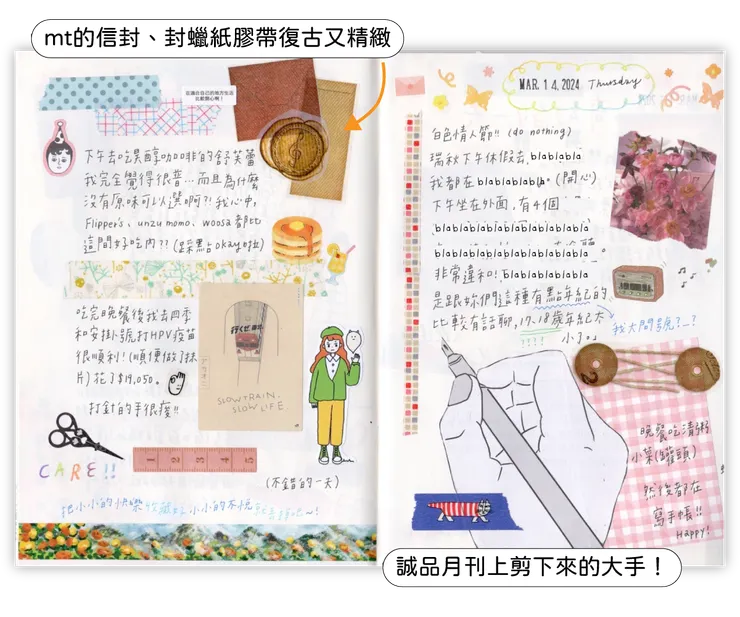 mt的信封、封蠟紙膠帶復古又精緻
下午去吃
我完全覺得很普...而且為什麼
沒有原味可以選啊?!我心中,
Flipper's、unzu momo、woosa 都比
這間好吃內??(踩點okay啦)
吃完晚餐後我去四季
和安掛號打HPV疫苗
很順利!(順便做了抹
片)花了$19,050。
打針的手很痠!!
SLOW TRAIN,
SLOW LIFE
CARE!!
1 2 3 4 5
(不錯的一天)
把小小的快樂收藏好小小的不悅
MAR. 14. 2024 Thursday
白色情人節!! (do nothing)
瑞秋下午休假去, blablabla
我都在 blablablabla。(開心)
下午坐在外面,有4個
blablablablablablabla
blablablablablablabla。
非常違和! blablablabla
是跟妳們這種有點年紀的
比較有話聊, 17.18歲年紀太
小了。
????
我大門號?_?
晚餐吃清粥
小菜(罐頭)
然後都在
寫手帳!!
Happy!
誠品月刊上剪下來的大手!